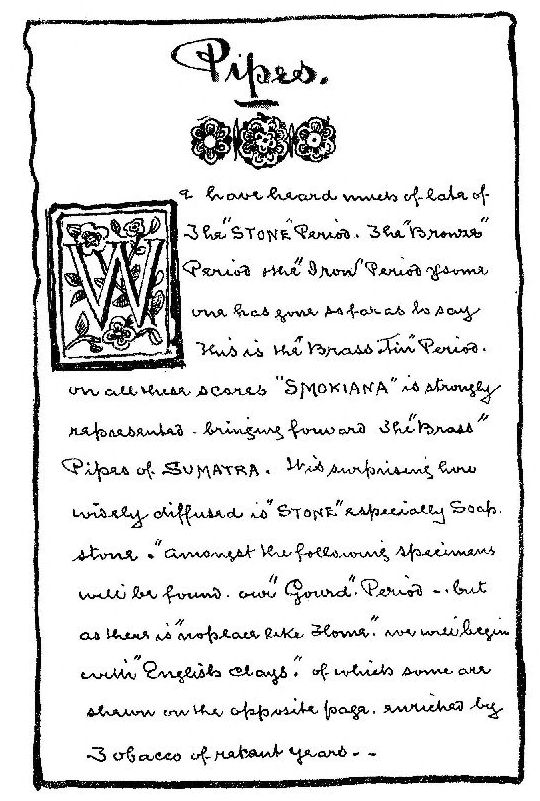 Pipes.
We have heard much of late of
The "STONE" Period. The "Bronze"
Period & the "Iron" Period & some
one has gone so far as to say
This is the "Brass & Tin" Period.
on all these scores "SMOKIANA" is strongly
represented - bringing forward The "Brass"
Pipes of SUMATRA. It is surprising how
widely diffused is "STONE" especially Soap.
stone. "amongst the following specimens
will be found. our "Gourd". Period -. but
as there is "no place like Home". we will begin
with "English clays." of which some are
shewn on the opposite page. enriched by
Tobacco of rekant years - -